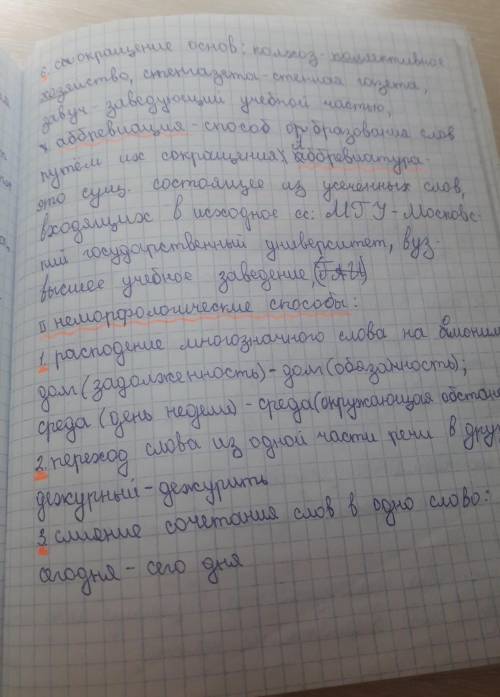 6. сокращение основ: колхоз-коллективное
хозяйство, стенгазета-стенная газета,
завуч-заведующий учебной частью,
х аббревиация-способ образования слов
путём их сокращения х аббревиатура-
это сущ. состоящее из усеченных слов,
входящих в исходное сс: МГУ-Московс-
кий государственный университет, вуз-
высшее учебное заведение, (ГАИ)
II неморфологические способы:
1. расподение многозначного слова на омоним
дом (задолженность)-дом (обязанность);
среда (день недели)-среда (окружающая обстан
2. переход слова из одной части речи в дру
дежурный-дежурить
3. слиение сочетания слов в одно слово:
сегодня-сего дня